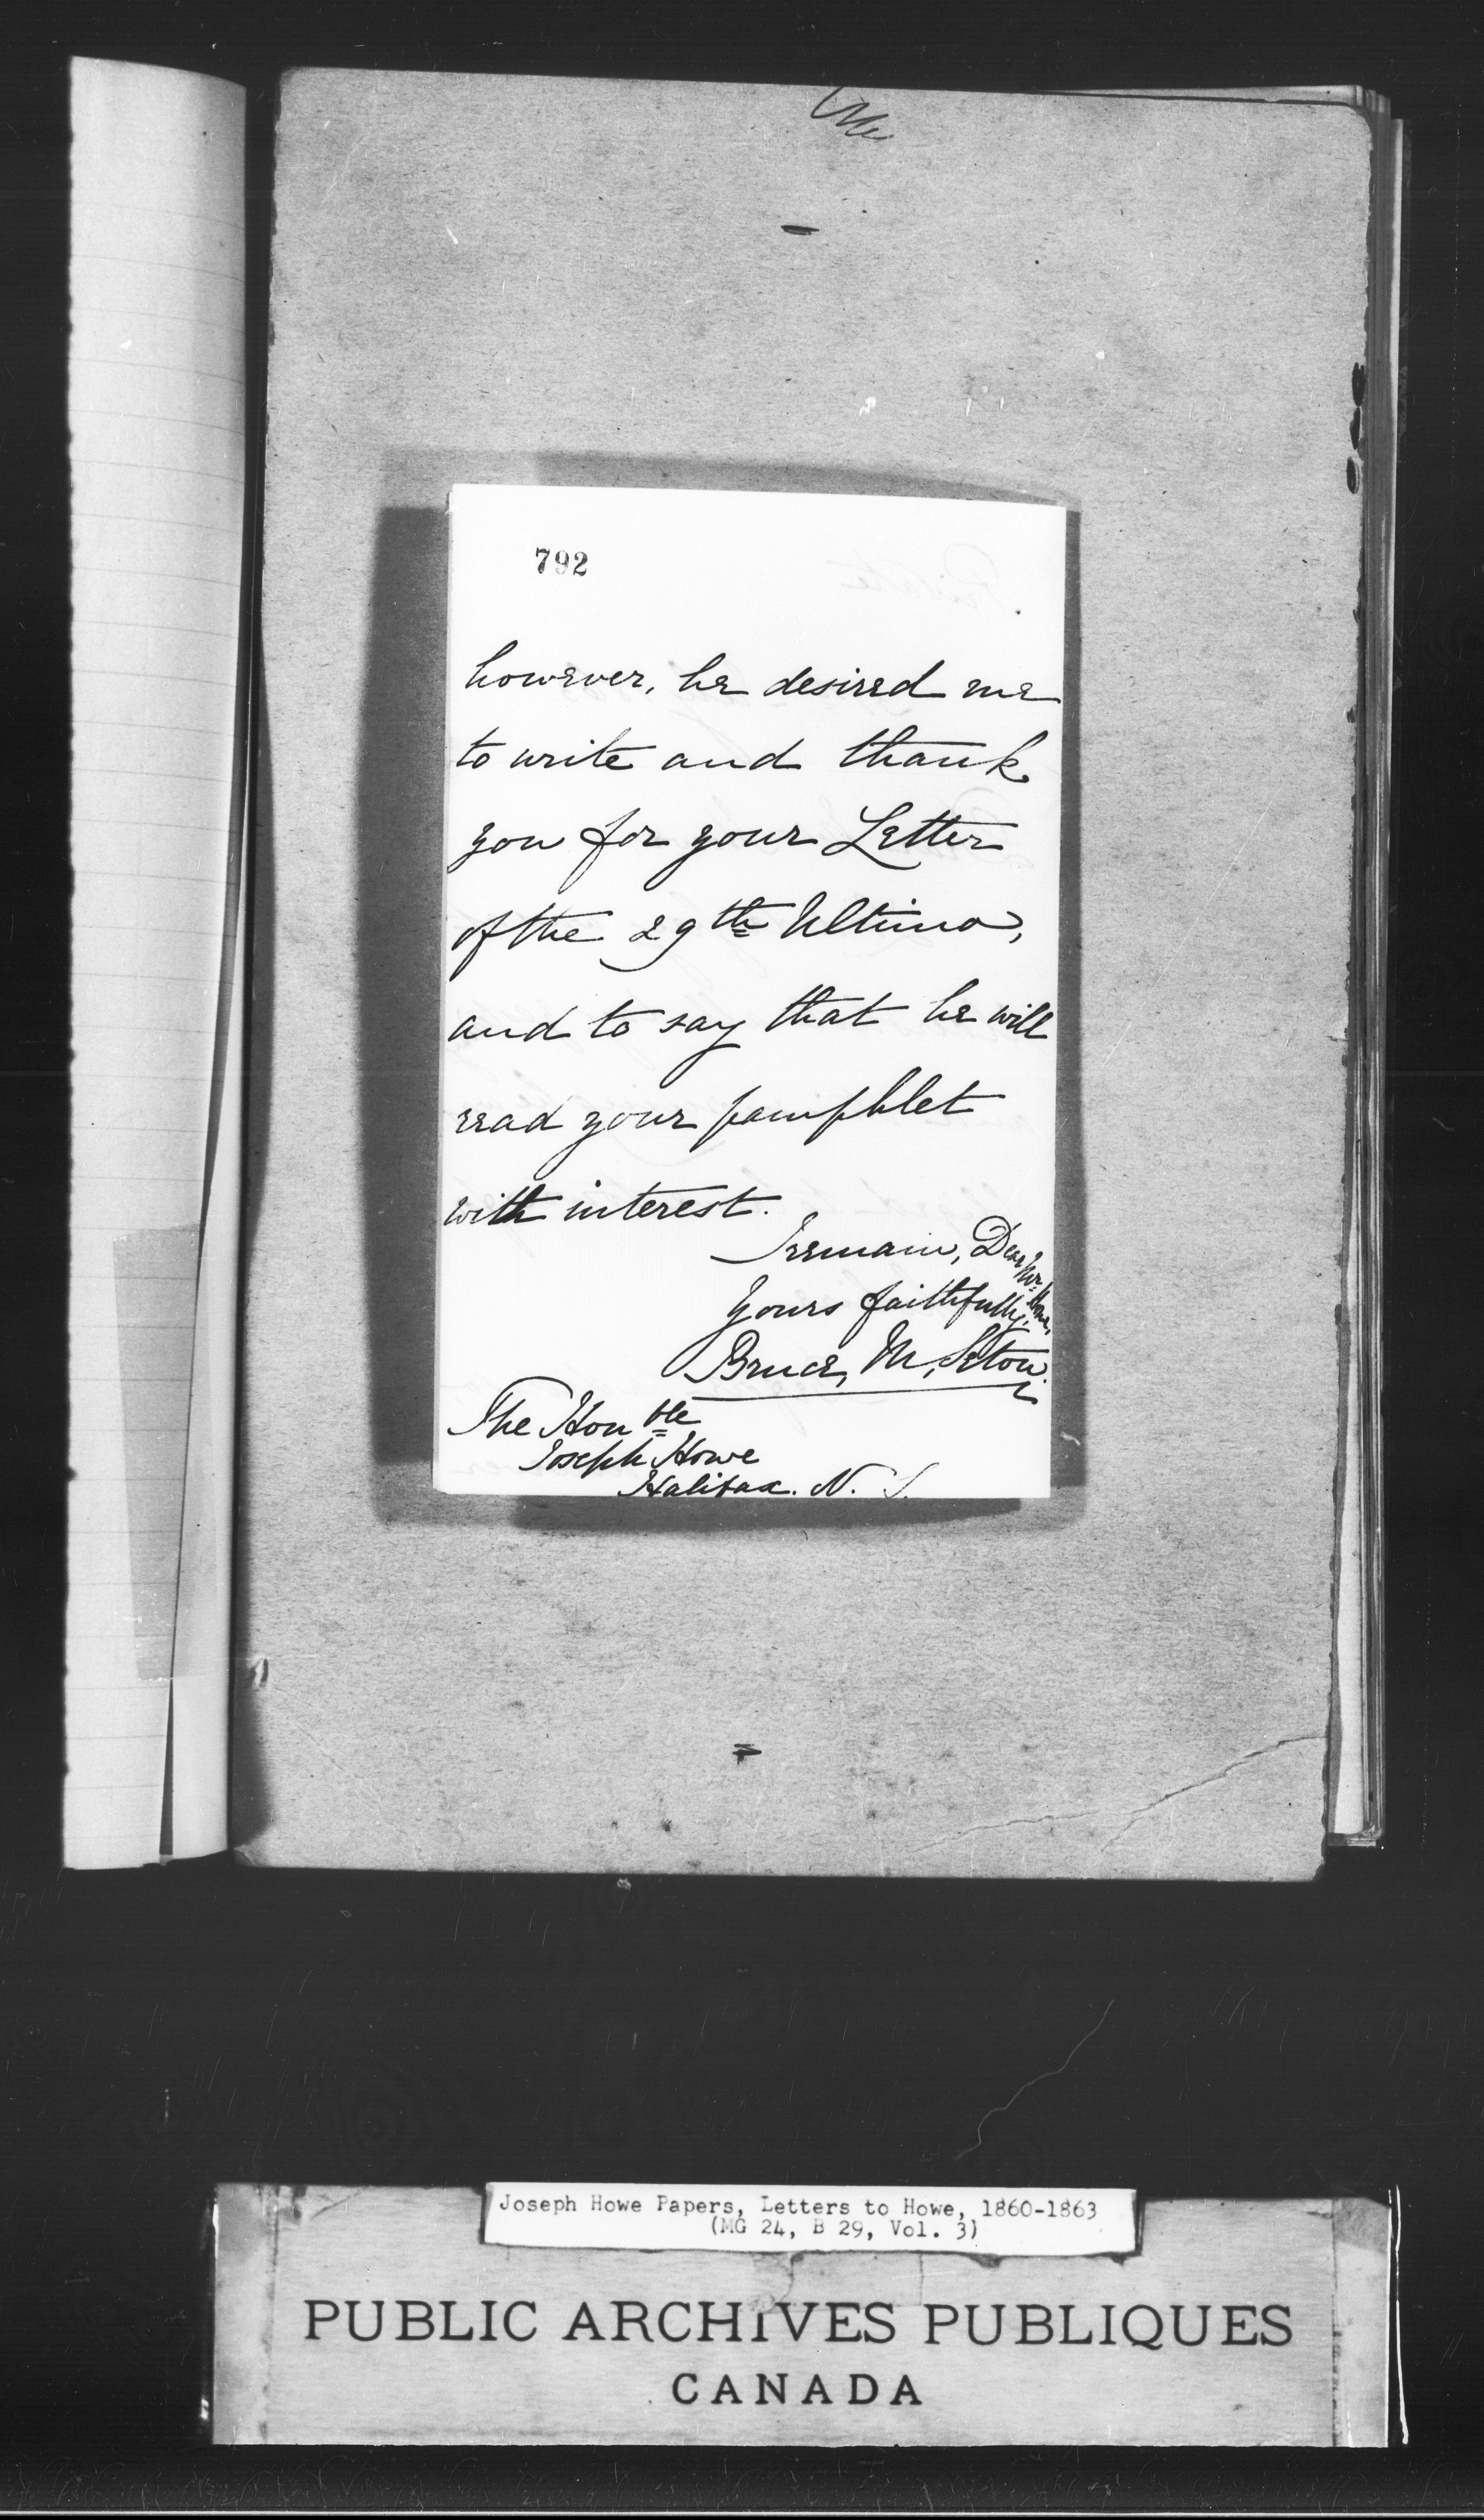 792
however, he desired me
to write and thank
you for your Letter
of the 29th Ultimo,
and to say that he will
read your pamphlet
with interest.
I remain, Dear Mr. Howe,
Yours faithfully,
Bruce, M, Seton.
The Honble
Joseph Howe
Halifax. N. S.
Joseph Howe Papers, Letters to Howe, 1860-1863
(MG 24, B 29, Vol. 3)
PUBLIC ARCHIVES PUBLIQUES
CANADA